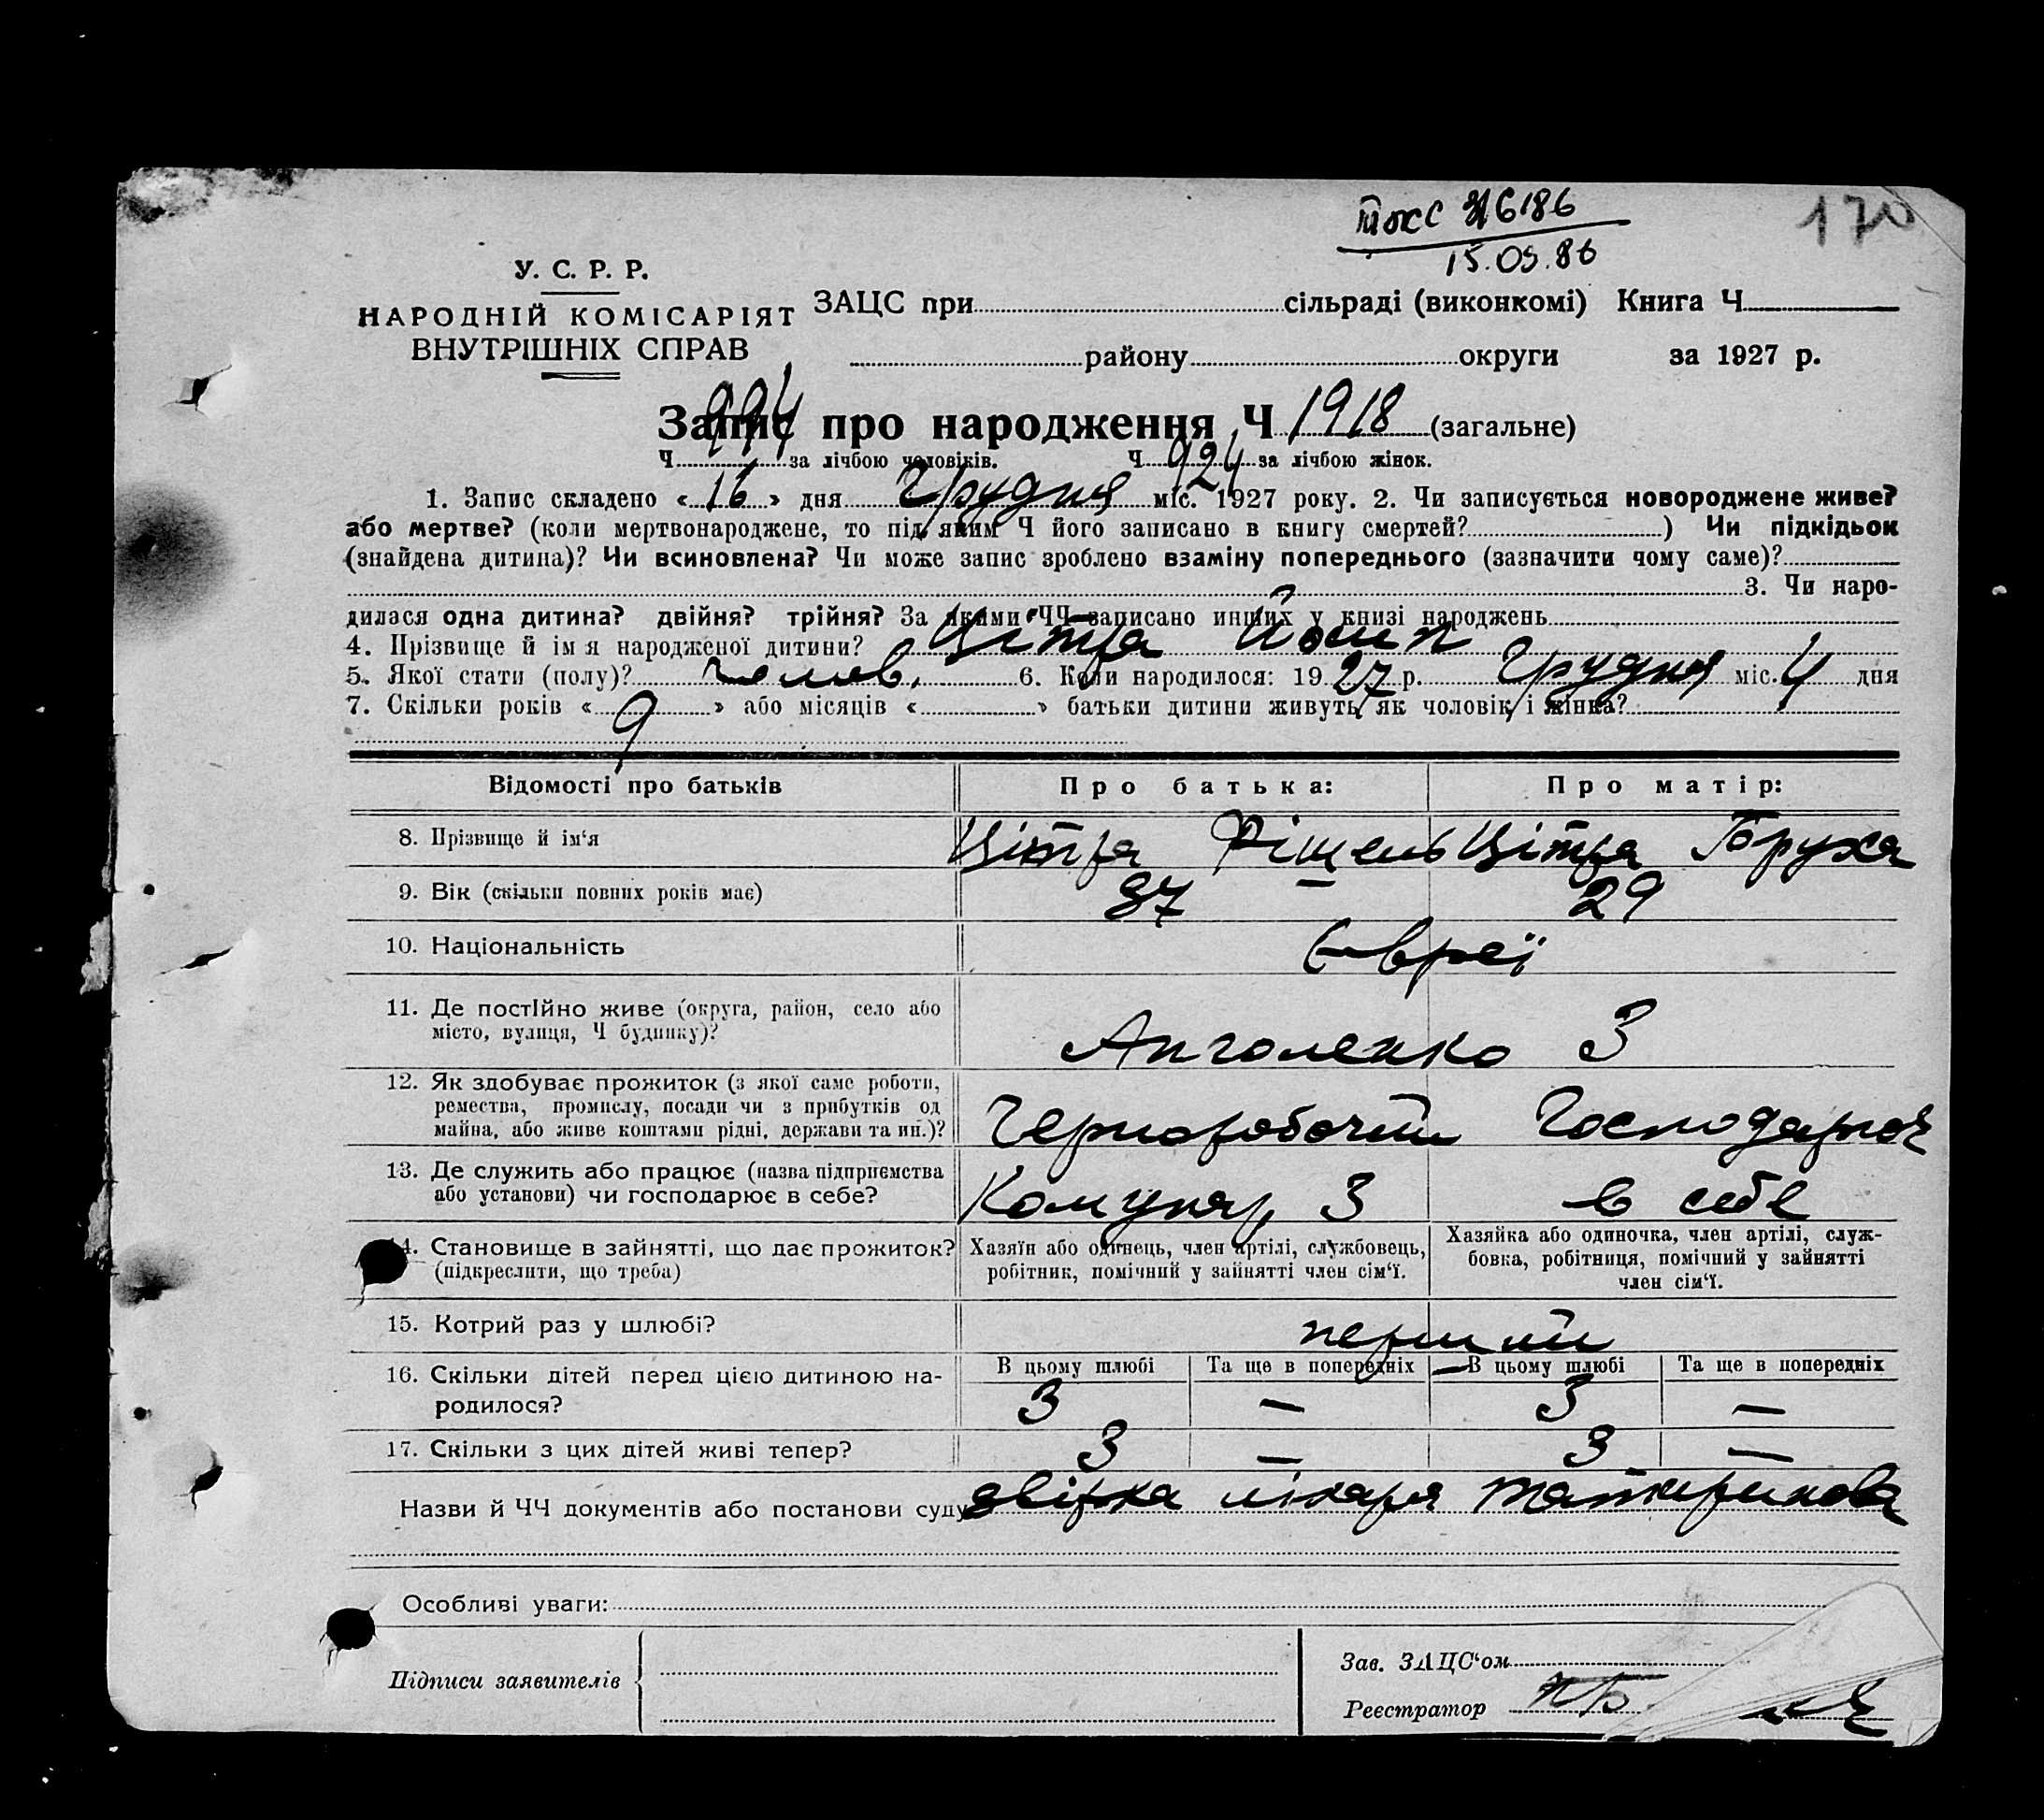 170
15.09.86
У. С. Р. Р.
НАРОДНІЙ КОМІСАРІЯТ
ВНУТРІШНІХ СПРАВ
ЗАЦС при сільраді (виконкомі) Книга Ч
району округи за 1927 р.
994
Запис про народження Ч 1918 (загальне)
Ч за лічбою чоловіків. Ч 924 за лічбою жінок.
1. Запис складено «16» дня Грудня міс. 1927 року. 2. Чи записується новороджене живе?
або мертве? (коли мертвонароджене, то під яким Ч його записано в книгу смертей? ) Чи підкідьок
(знайдена дитина)? Чи всиновлена? Чи може запис зроблено взаміну попереднього (зазначити чому саме)?
3. Чи наро-
дилася одна дитина? двійня? трійня? За якими ЧЧ записано инших у книзі народжень
4. Прізвище й ім я народженої дитини? Цітра Йосип
5. Якої стати (полу)? чолов. 6. Коли народилося: 1927 р. Грудня міс. 4 дня
7. Скільки років «9» або місяців « » батьки дитини живуть як чоловік і жінка?
Відомості про батьків Про батька: Про матір:
8. Прізвище й ім‘я Цітра Фішель Цітра Бруха
9. Вік (скільки повних років має) 37 – 29
10. Національність Євреї
11. Де постІйно живе (округа, район, село або
місто, вулиця, Ч будинку)? 3
12. Як здобуває прожиток (з якої саме роботи,
ремества, промислу, посади чи з прибутків од
майна, або живе коштами рідні, держави та ин.)? Чернорабочий
13. Де служить або працює (назва підприємства
або установи) чи господарює в себе? Комунар, 3 в себе
14. Становище в зайнятті, що дає прожиток?
(підкреслити, що треба)
Хазяїн або одинець, член артілі, службовець,
робітник, помічний у зайнятті член сім‘ї.
Хазяйка або одиночка, член артілі, служ-
бовка, робітниця, помічний у зайнятті
член сім‘ї.
15. Котрий раз у шлюбі? перший
16. Скільки дітей перед цією дитиною на-
родилося?
В цьому шлюбі Та ще в попередніх В цьому шлюбі Та ще в попередніх
3 — 3 —
17. Скільки з цих дітей живі тепер? 3 — 3 —
Назви й ЧЧ документів або постанови суду довірка лікаря
Особливі уваги:
Підписи заявителів
Зав. ЗАЦС‘ом
Реєстратор